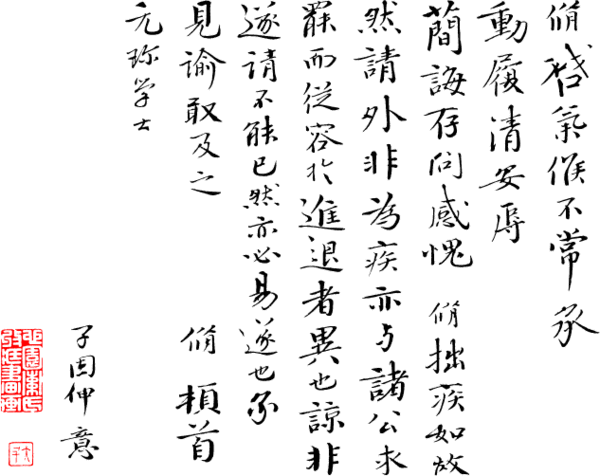 脩啓氣候不常承
動履清安辱
簡誨存問感愧 脩拙疾如故
然請外非為疾亦与諸公求
罷而從容於進退者異也諒非
遂請不能已然亦必易遂也承
見諭敢及之 脩頓首
元珎学士
子固伸意